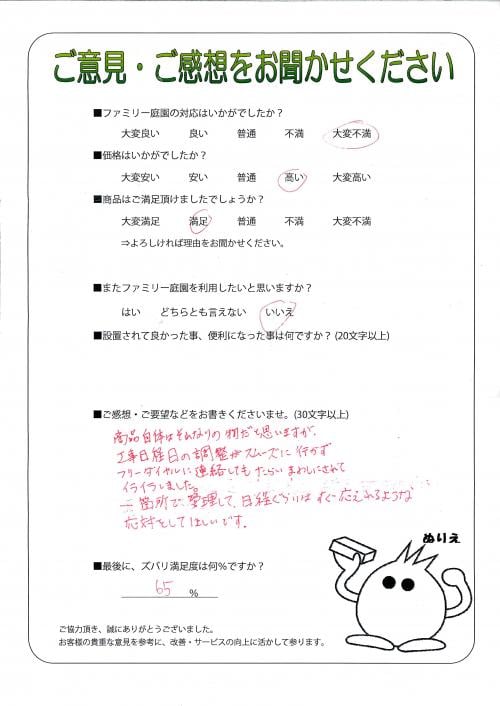 ご意見・ご感想をお聞かせください
■ファミリー庭園の対応はいかがでしたか？
大変良い 良い 普通 不満 大変不満
■価格はいかがでしたか？
大変安い 安い 普通 高い 大変高い
■商品はご満足頂けましたでしょうか？
大変満足 満足 普通 不満 大変不満
⇒よろしければ理由をお聞かせください。
■またファミリー庭園を利用したいと思いますか？
はい どちらとも言えない いいえ
■設置されて良かった事、便利になった事は何ですか？(20文字以上)
■ご感想・ご要望などをお書きくださいませ。(30文字以上)
商品自体はそれなりの物だと思いますが、
工事日程日の調整がスムーズに行かず
フリーダイヤルに連絡してもたらいまわしにされて
イライラしました。
一箇所で管理して、日程ぐらいはすぐ応えれるような
応対をしてほしいです。
ぬりえ
■最後に、ズバリ満足度は何％ですか？
65 ％
ご協力頂き、誠にありがとうございました。
お客様の貴重な意見を参考に、改善・サービスの向上に活かして参ります。